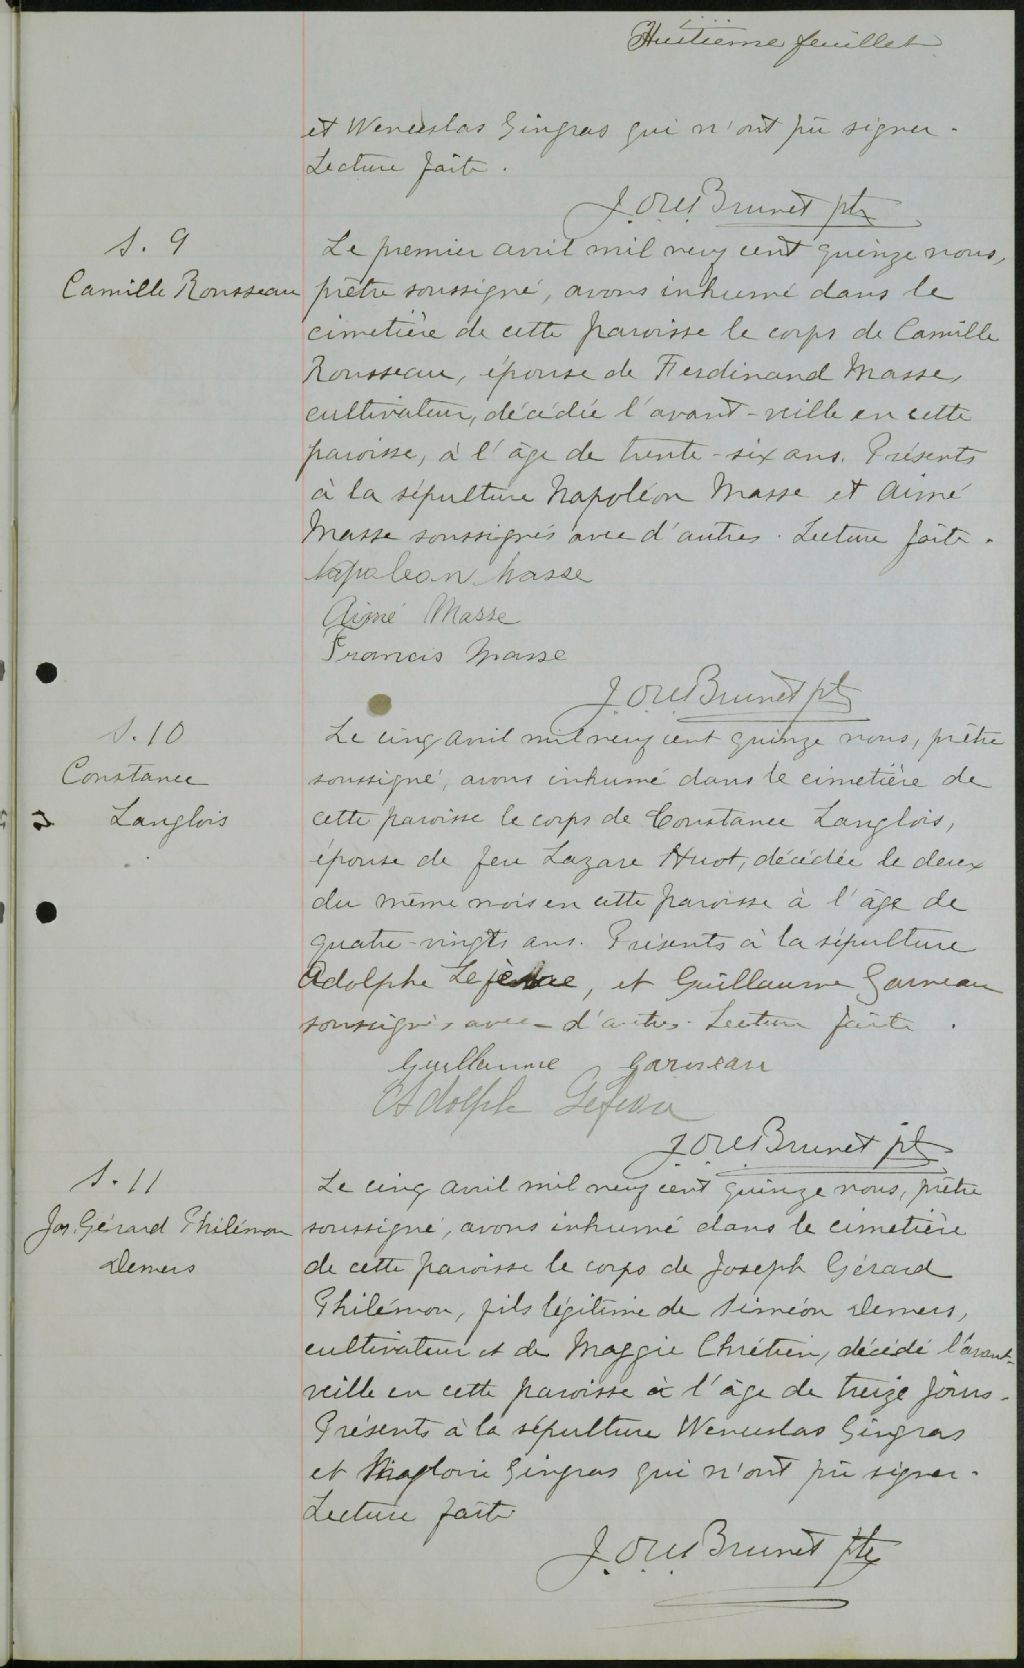 Huitième feuillet
et Wenceslas Gingras qui n'ont pû signer.
Lecture faite.
J. O. Brunet ptre
S. 9
Camille Rousseau
Le premier avril mil neuf cent quinze nous,
prêtre soussigné, avons inhumé dans le
cimetière de cette paroisse le corps de Camille
Rousseau, épouse de Ferdinand Masse,
cultivateur, décédée l'avant-veille en cette
paroisse, à l'âge de trente-six ans. Présents
à la sépulture Napoléon Masse et Aimé
Masse soussignés avec d'autres. Lecture faite.
Napoleon Masse
Aimé Masse
Francis Masse
J. O. Brunet ptre
S. 10
Constance
Langlois
Le cinq avril mil neuf cent quinze nous, prêtre
soussigné, avons inhumé dans le cimetière de
cette paroisse le corps de Constance Langlois,
épouse de feu Lazare Huot, décédée le deux
du même mois en cette paroisse à l'âge de
quatre-vingts ans. Présents à la sépulture
Adolphe Lefebvre, et Guillaume Garneau
soussignés avec d'autres. Lecture faite.
Guillaume Garneau
Adolph Lefevre
J. O. Brunet ptre
S. 11
Jos. Gérard Philémon
Demers
Le cinq avril mil neuf cent quinze nous, prêtre
soussigné, avons inhumé dans le cimetière
de cette paroisse le corps de Joseph Gérard
Philémon, fils légitime de Siméon Demers,
cultivateur et de Maggie Chrétien, décédé l'avant-
veille en cette paroisse à l'âge de treize jours.
Présents à la sépulture Wenceslas Gingras
et Magloire Gingras qui n'ont pû signer.
Lecture faite.
J. O. Brunet ptre